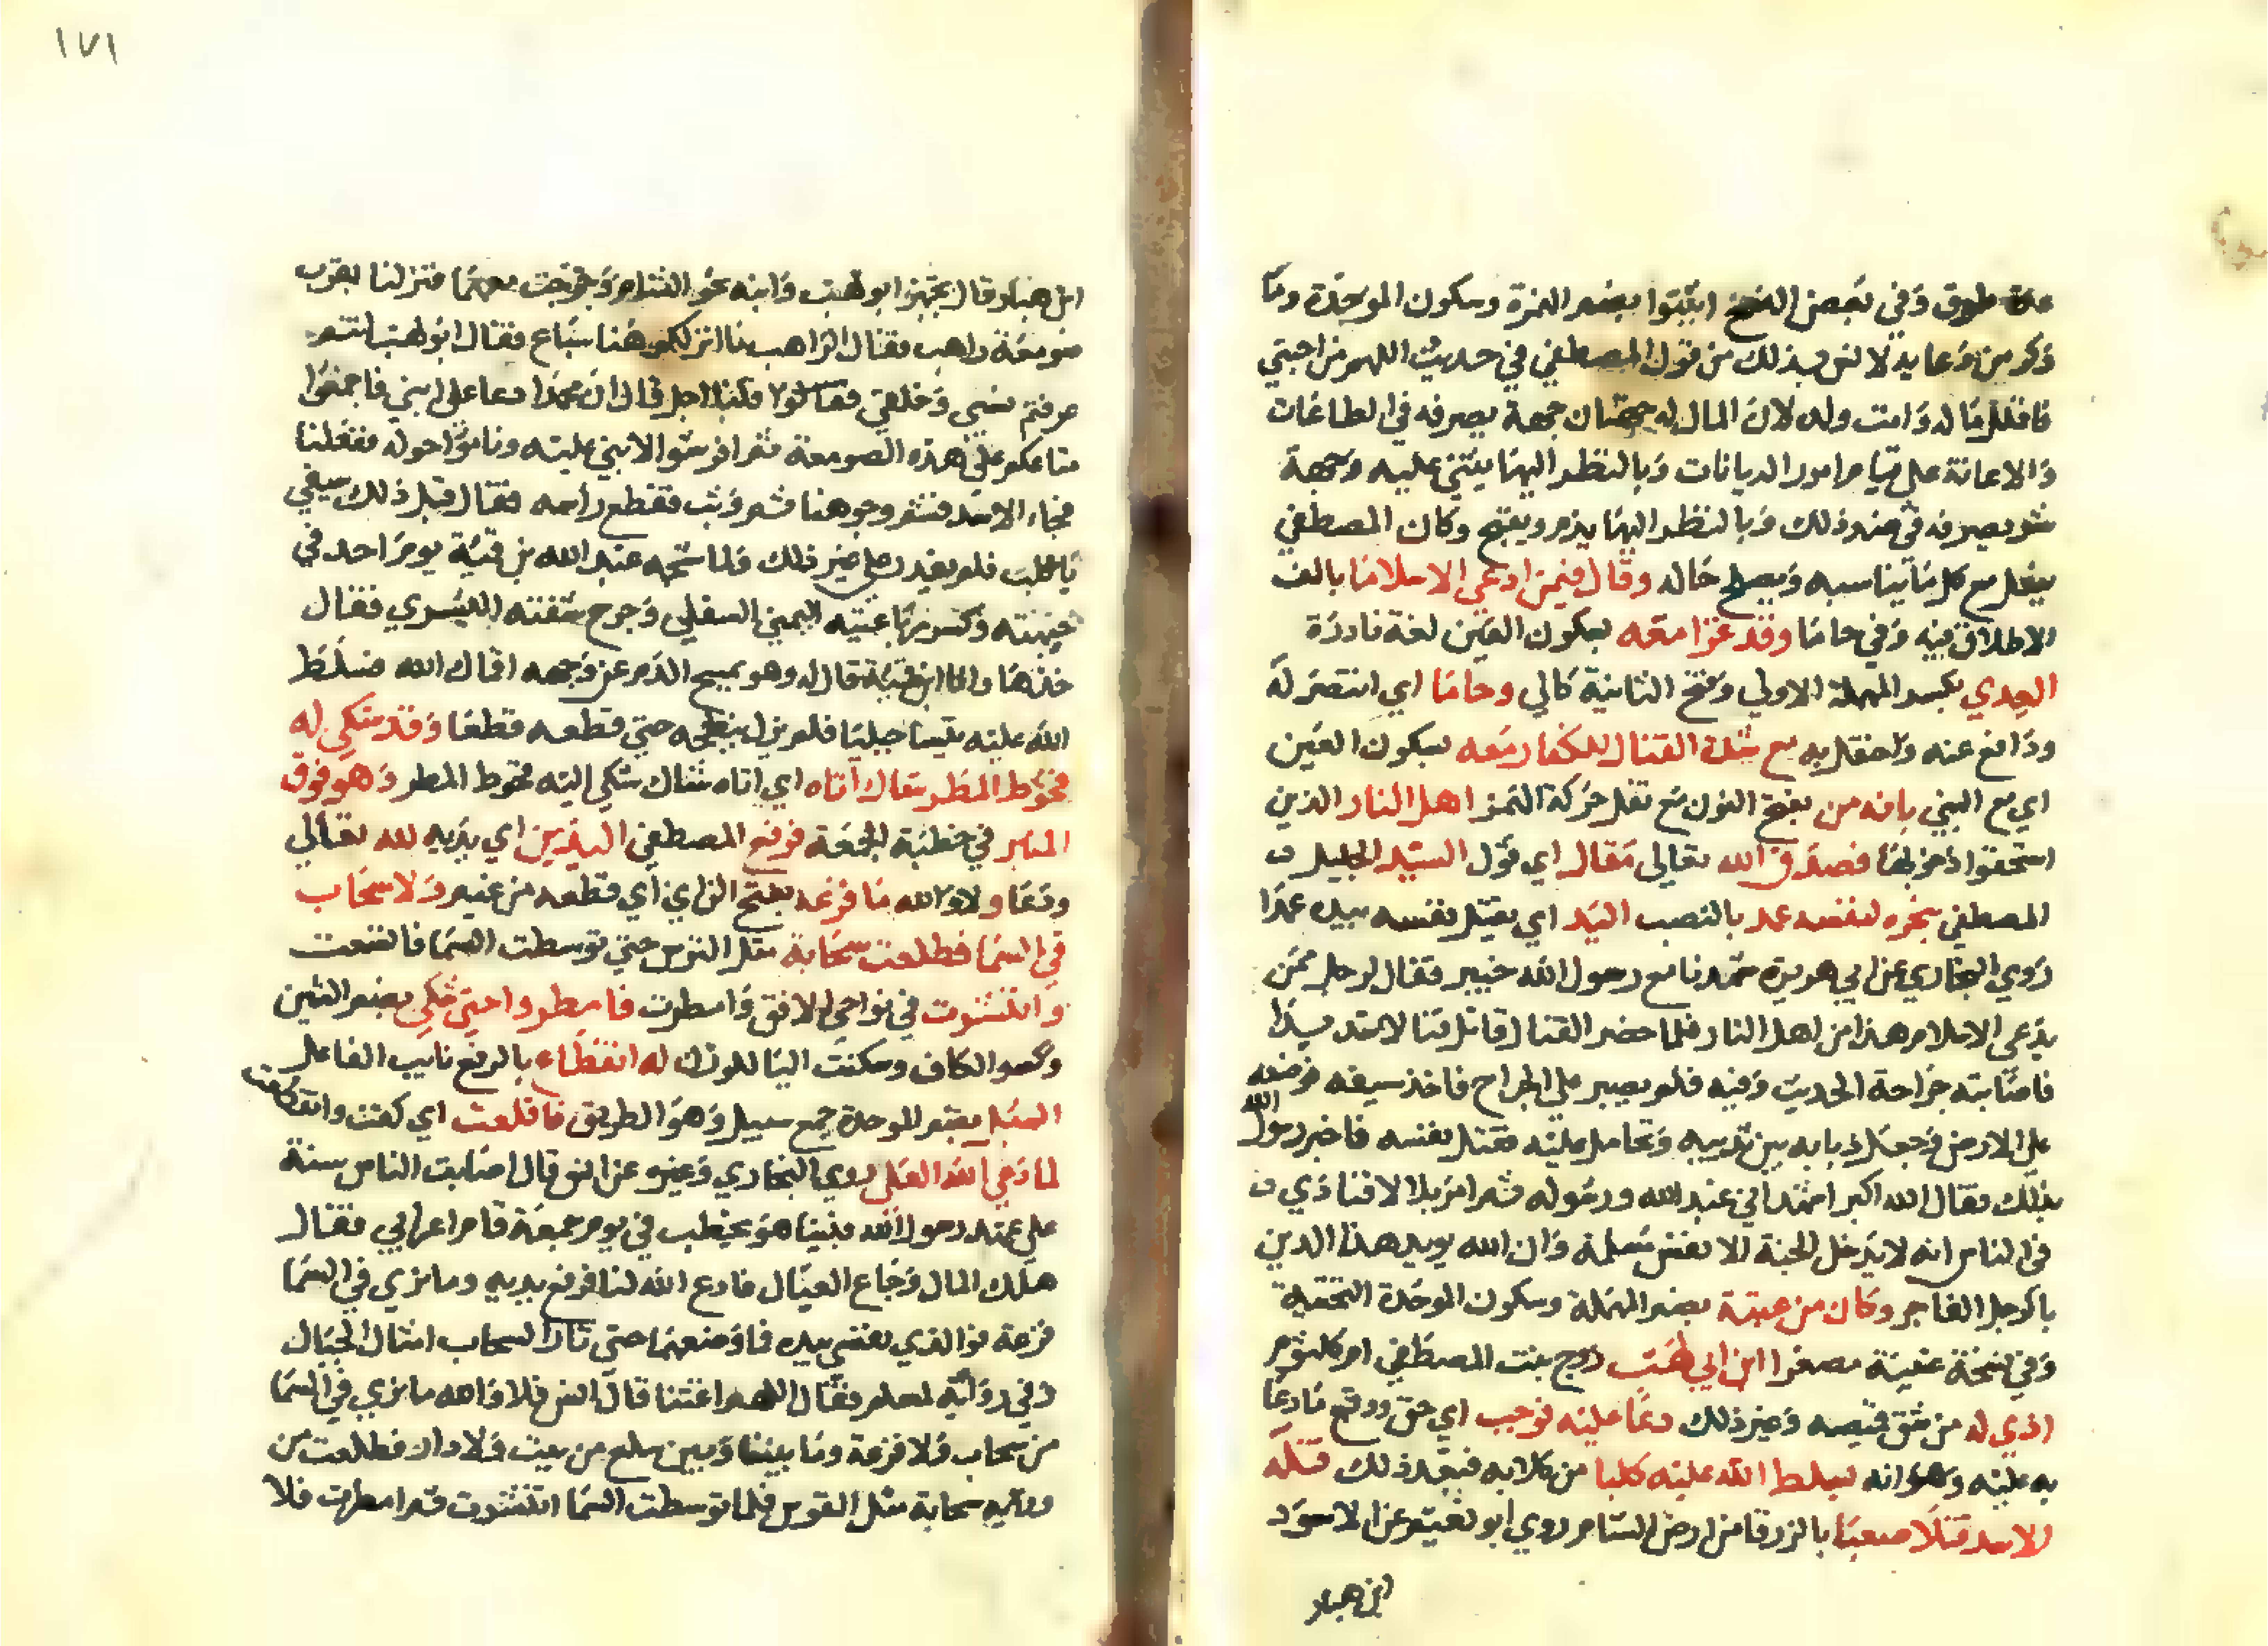 عدة طرق وفي بعض النسخ اثبتوا بضم الهمزة وسكون الموحدة وما
ذكر من دعايه لانس بذلك من قول المصطفي في حديث اللهم من احبني
فاقلل ماله وامت ولده لان المال له جهتان جهة يصرفه في الطاعات
والاعانة علي قيام امور الديانات وبالنظر اليها يثني عليه وجهة
شر يصرفه في ضد ذلك وبالنظر اليها يذم ويقبح وكان المصطفي
يفعل مع كل ما يناسبه ويصلح حاله وقال فيمن ادعي الاسلاما بالف
الاطلاق فيه وفي حاما وقد غزا معه بسكون العين لغة نادرة
العدي بكسر المهملة الاولي وفتح الثانية كالي وحاما اي انتصر له
ودافع عنه واحتفل به مع شدة القتال للكفار معه بسكون العين
اي مع النبي بانه من بفتح النون مع نقل حركة الهمز اهل النار الذين
استحقوا دخولها فصدق الله تعالي مقال اي قول السيد الجليل
المصطفي بنحره لنفسه عمد بالنصب اليد اي بقتل نفسه بيده عمدا
روي البخاري عن ابي هريرة شهدنا مع رسول الله خيبر فقال لرجل ممن
يدعي الاسلام هذا من اهل النار فلما حضر القتال قاتل قتالا شديدا
فاصابته جراحة الحديث وفيه فلم يصبر علي الجراح فاخذ سيفه فوضعه
علي الارض وجعل ذبابه بين ثدييه وتحامل عليه فقتل نفسه فاخبر رسول الله
بذلك فقال الله اكبر اشهد اني عبد الله ورسوله ثم امر بلالا فنادي
في الناس انه لا يدخل الجنة الا نفس مسلمة وان الله يويد هذا الدين
بالرجل الفاجر وكان من عتبة بضم المهملة وسكون الموحدة التحتية
وفي نسخة عتيبة مصغرا ابن ابي لهب زوج بنت المصطفي ام كلثوم
اذي له من شق قميصه وغير ذلك دعا عليه فوجب اي حق ووقع ما دعا
به عليه وهو انه يسلط الله عليه كلبا من كلابه فبعد ذلك قتله
الاسد قتلا صعبا بالزرقا من ارض الشام روي ابو نعيم عن الاسود
ابن هبار
١٧١
ابن هبار قال تجهز ابو لهب وابنه نحو الشام وخرجت معهما فنزلنا بقرب
صومعة راهب فقال الراهب ما انزلكم هنا سباع فقال ابو لهب انتم
عرفتم سني وحقي فقالوا فكنا اجل قال ان محمدا دعا علي ابني فاجمعوا
متاعكم علي هذه الصومعة ثم افرشوا لابني عليه وناموا حوله ففعلنا
فجاء الاسد فشم وجوهنا ثم وثب فقطع راسه فقال قبل ذلك سيفي
يا كلب فلم يقدر علي غير ذلك ولما شجه عبد الله بن قمية يوم احد في
جبهته وكسر رباعيته اليمني السفلي وجرح شفته اليسري فقال
خذها وانا ابن قمية قال له وهو يمسح الدم عن وجهه اقماك الله فسلط
الله عليه تيسا جبليا فلم يزل ينطحه حتي قطعه قطعا وقد شكي له
قحوط المطر شاك اتاه اي اتاه شاك شكي اليه قحوط المطر وهو فوق
المنبر في خطبة الجمعة فرفع المصطفي اليدين اي يديه لله تعالي
ودعا ولا والله ما قزعة بفتح الزاي اي قطعة من غيم ولا سحاب
في السما فطلعت سحابة مثل الترس حتي توسطت السما فاتسعت
وانتشرت في نواحي الافق وامطرت فامطروا حتي شكي بضم الشين
وكسر الكاف وسكنت اليا للوزن له انقطاء بالرفع نايب الفاعل
السبل بضم الموحدة جمع سبيل وهو الطريق فاقلعت اي كفت وانقطعت
لما دعي الله العلي روي البخاري وغيره عن انس قال اصابت الناس سنة
علي عهد رسول الله فبينا هو يخطب في يوم جمعة قام اعرابي فقال
هلك المال وجاع العيال فادع الله لنا فرفع يديه وما نري في السما
قزعة فوالذي نفسي بيده ما وضعهما حتي ثار السحاب امثال الجبال
وفي رواية لمسلم فقال اللهم اغثنا قال انس فلا والله ما نري في السما
من سحاب ولا قزعة وما بيننا وبين سلع من بيت ولا دار فطلعت من
ورائه سحابة مثل القوس فلما توسطت السما انتشرت ثم امطرت فلا